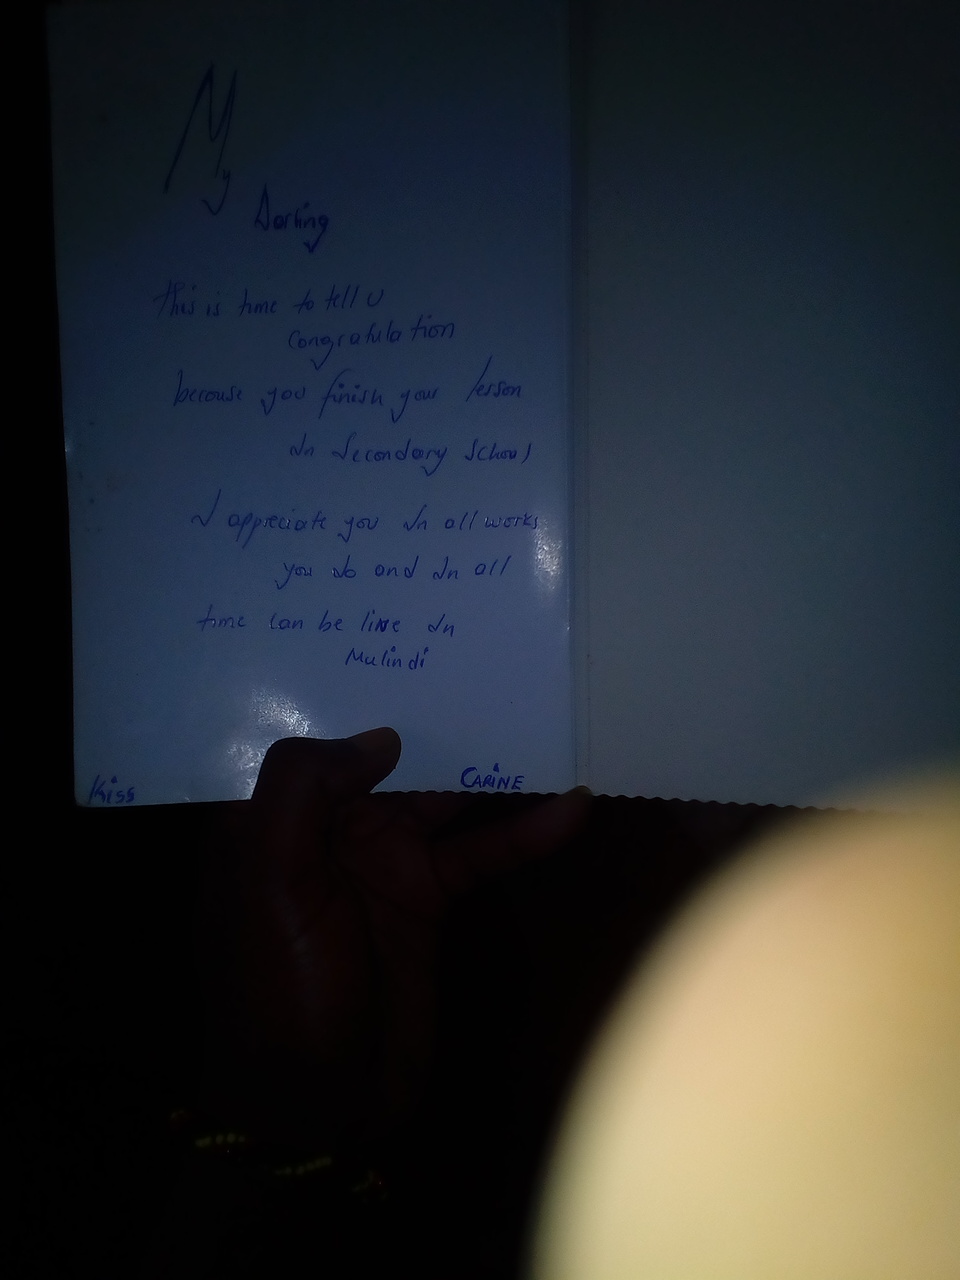 My
Darling
this is time to tell U
congratulation
because you finish your lesson
In Secondary School
I appreciate you In all works
you do and In all
time can be live In
Mulindi
Kiss
CARINE